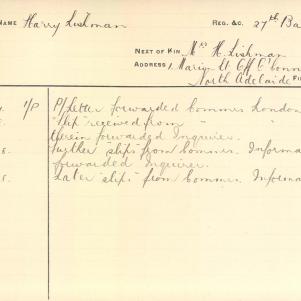 NAME Harry Lishman REG. &C. 27th Ba
NEXT OF KIN Mrs H. Lishman
ADDRESS 1 Marion St Off O'Conn
North Adelaide
P/letter forwarded Commrs London
"Slip" received from " "
therein forwarded Inquirer.
Further "slips" from Commrs. Informa
forwarded Inquirer.
Later "slips" from Commrs. Informa